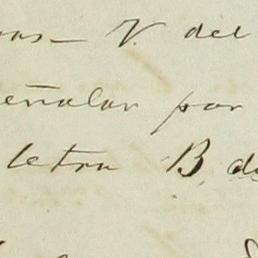 V. del
señalar por
letra B. de